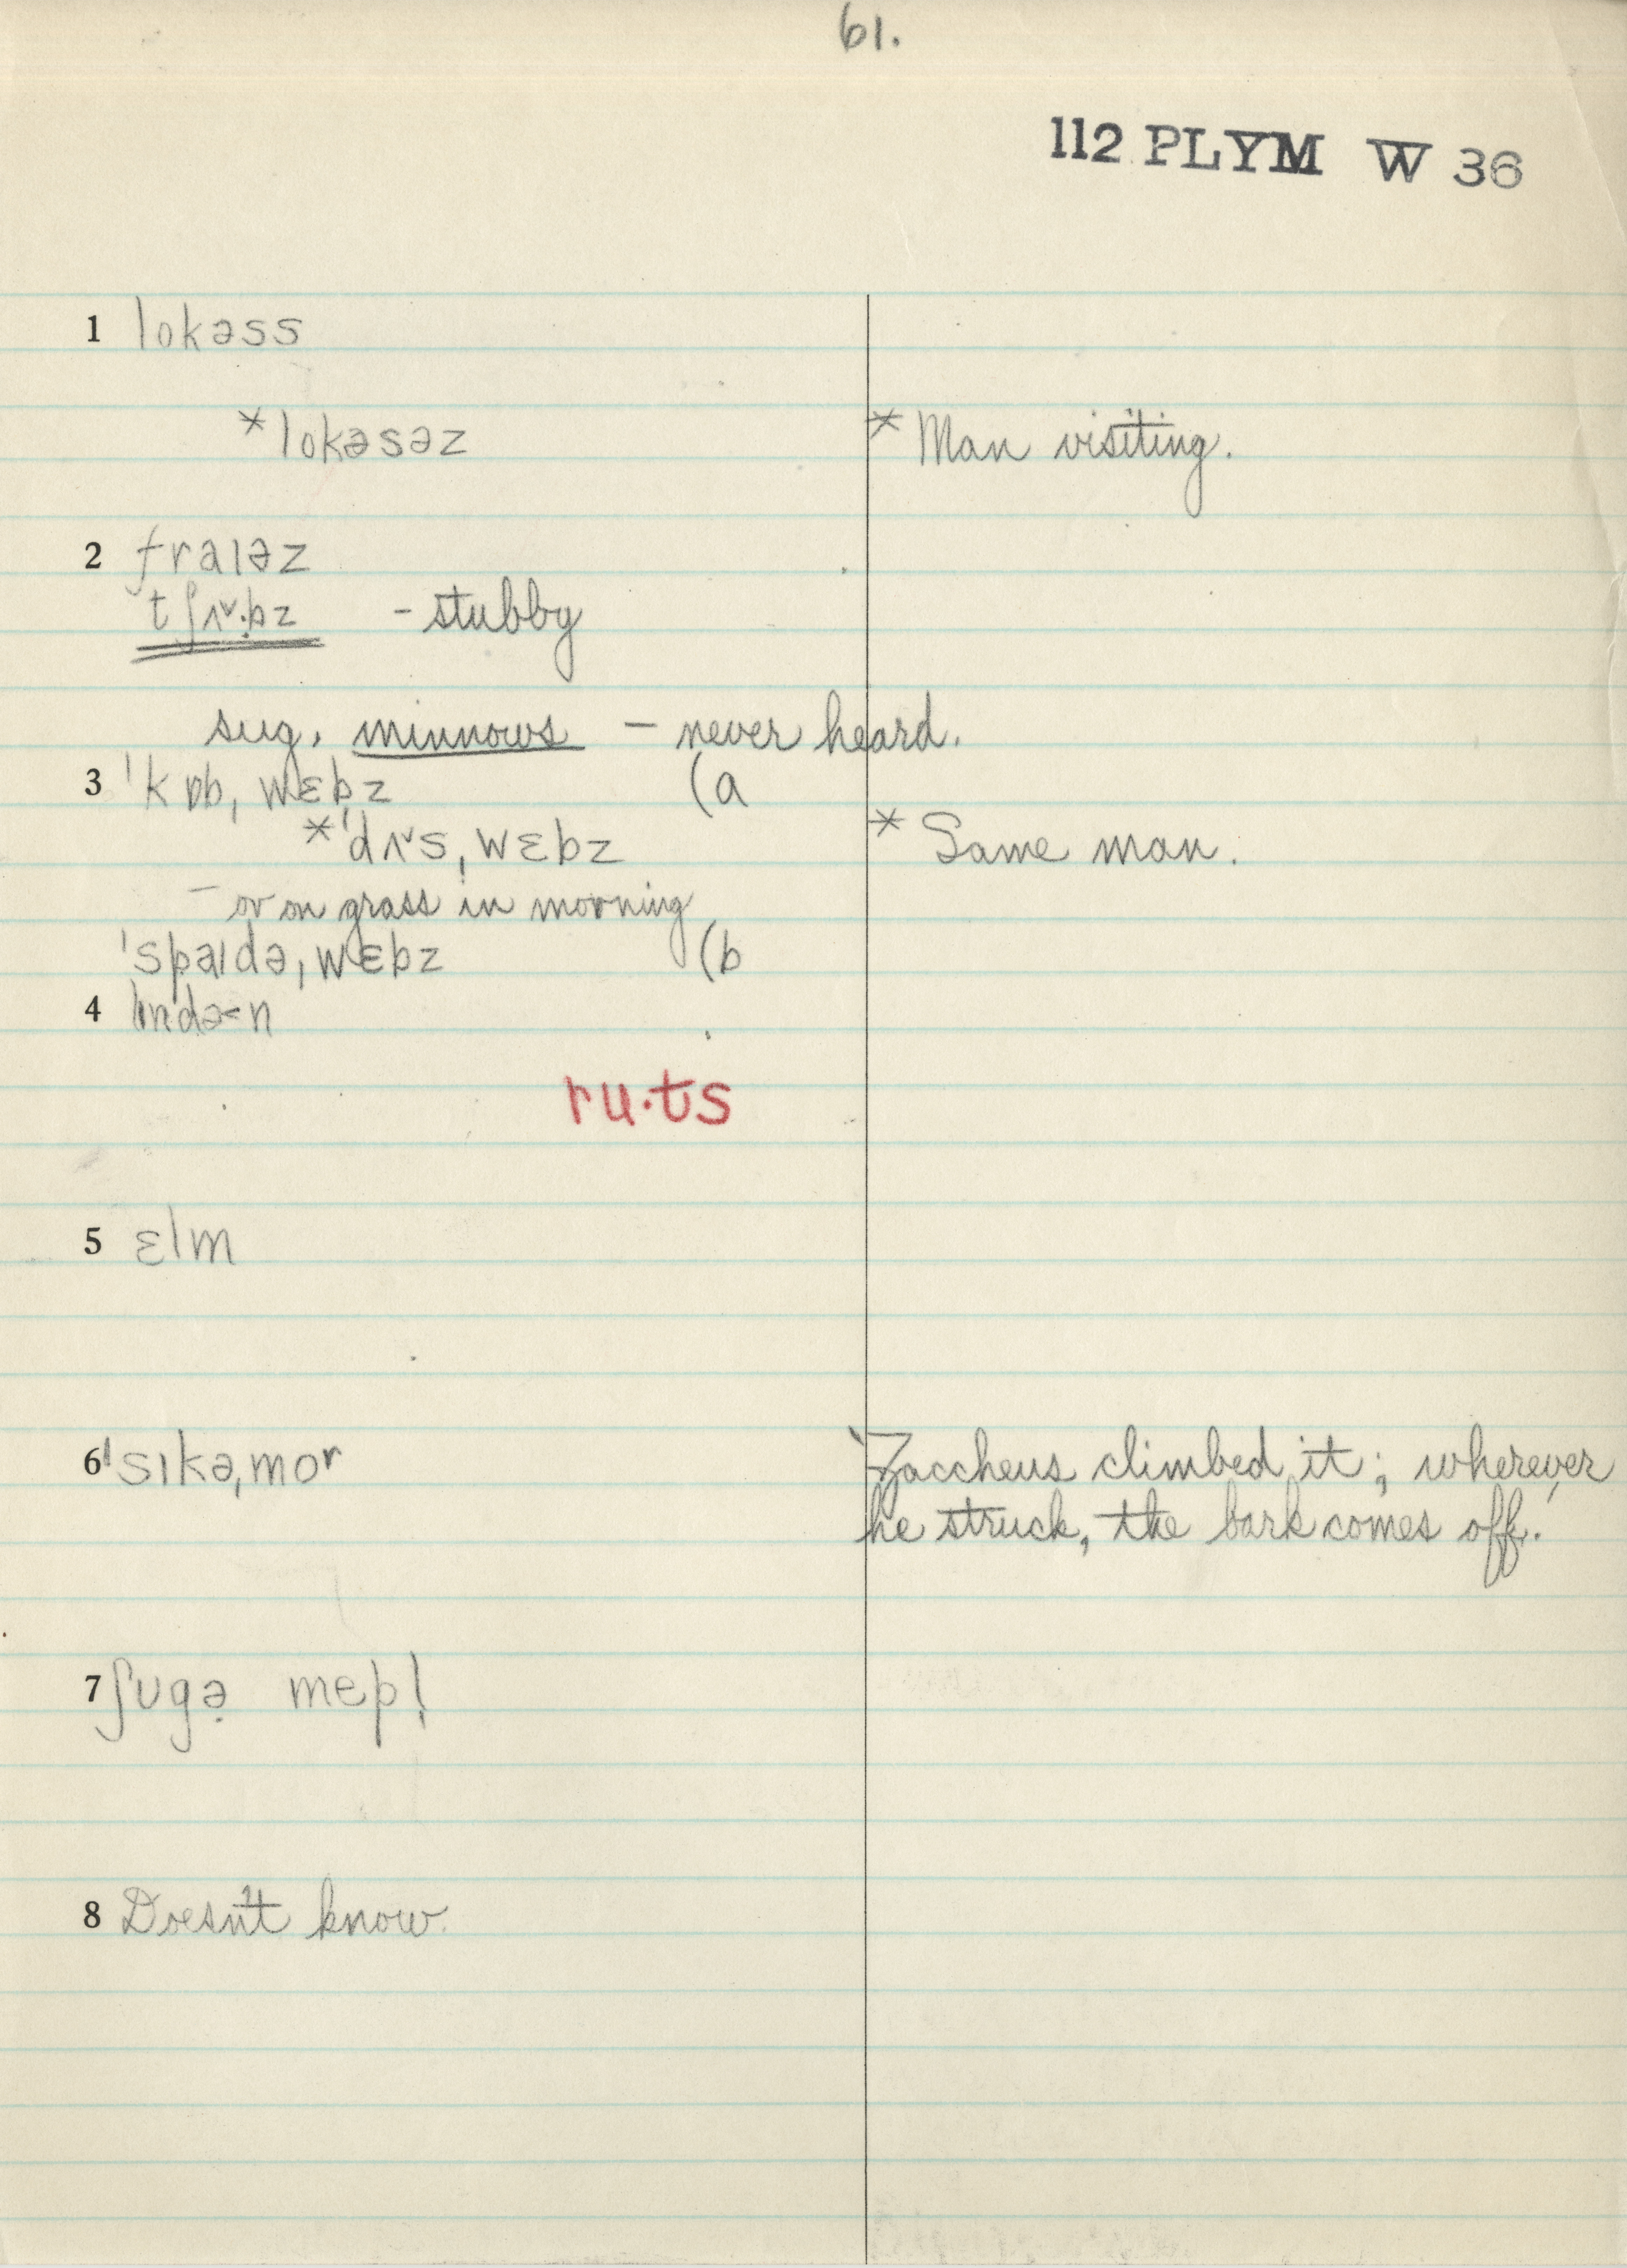 61.
112 PLYM W 36
1 lokəss
*lokəsəz * Man visiting.
2 fraɪəz
tʃʌ˅·bz - stubby
sug. minnows — never heard.
3 ˈkɒbˌwɛbz (a
*ˈdʌ˅sˌwɛbz * Same man.
— or on grass in morning
ˈspaɪdəˌwɛbz (b
4
ru·ts
5 ɛlm
6 ˈsɪkəˌmoʳ Zaccheus climbed it; wherever
he struck, the bark comes off.
7 ʃʊgə̣ mepl̩
8 Doesn't know.